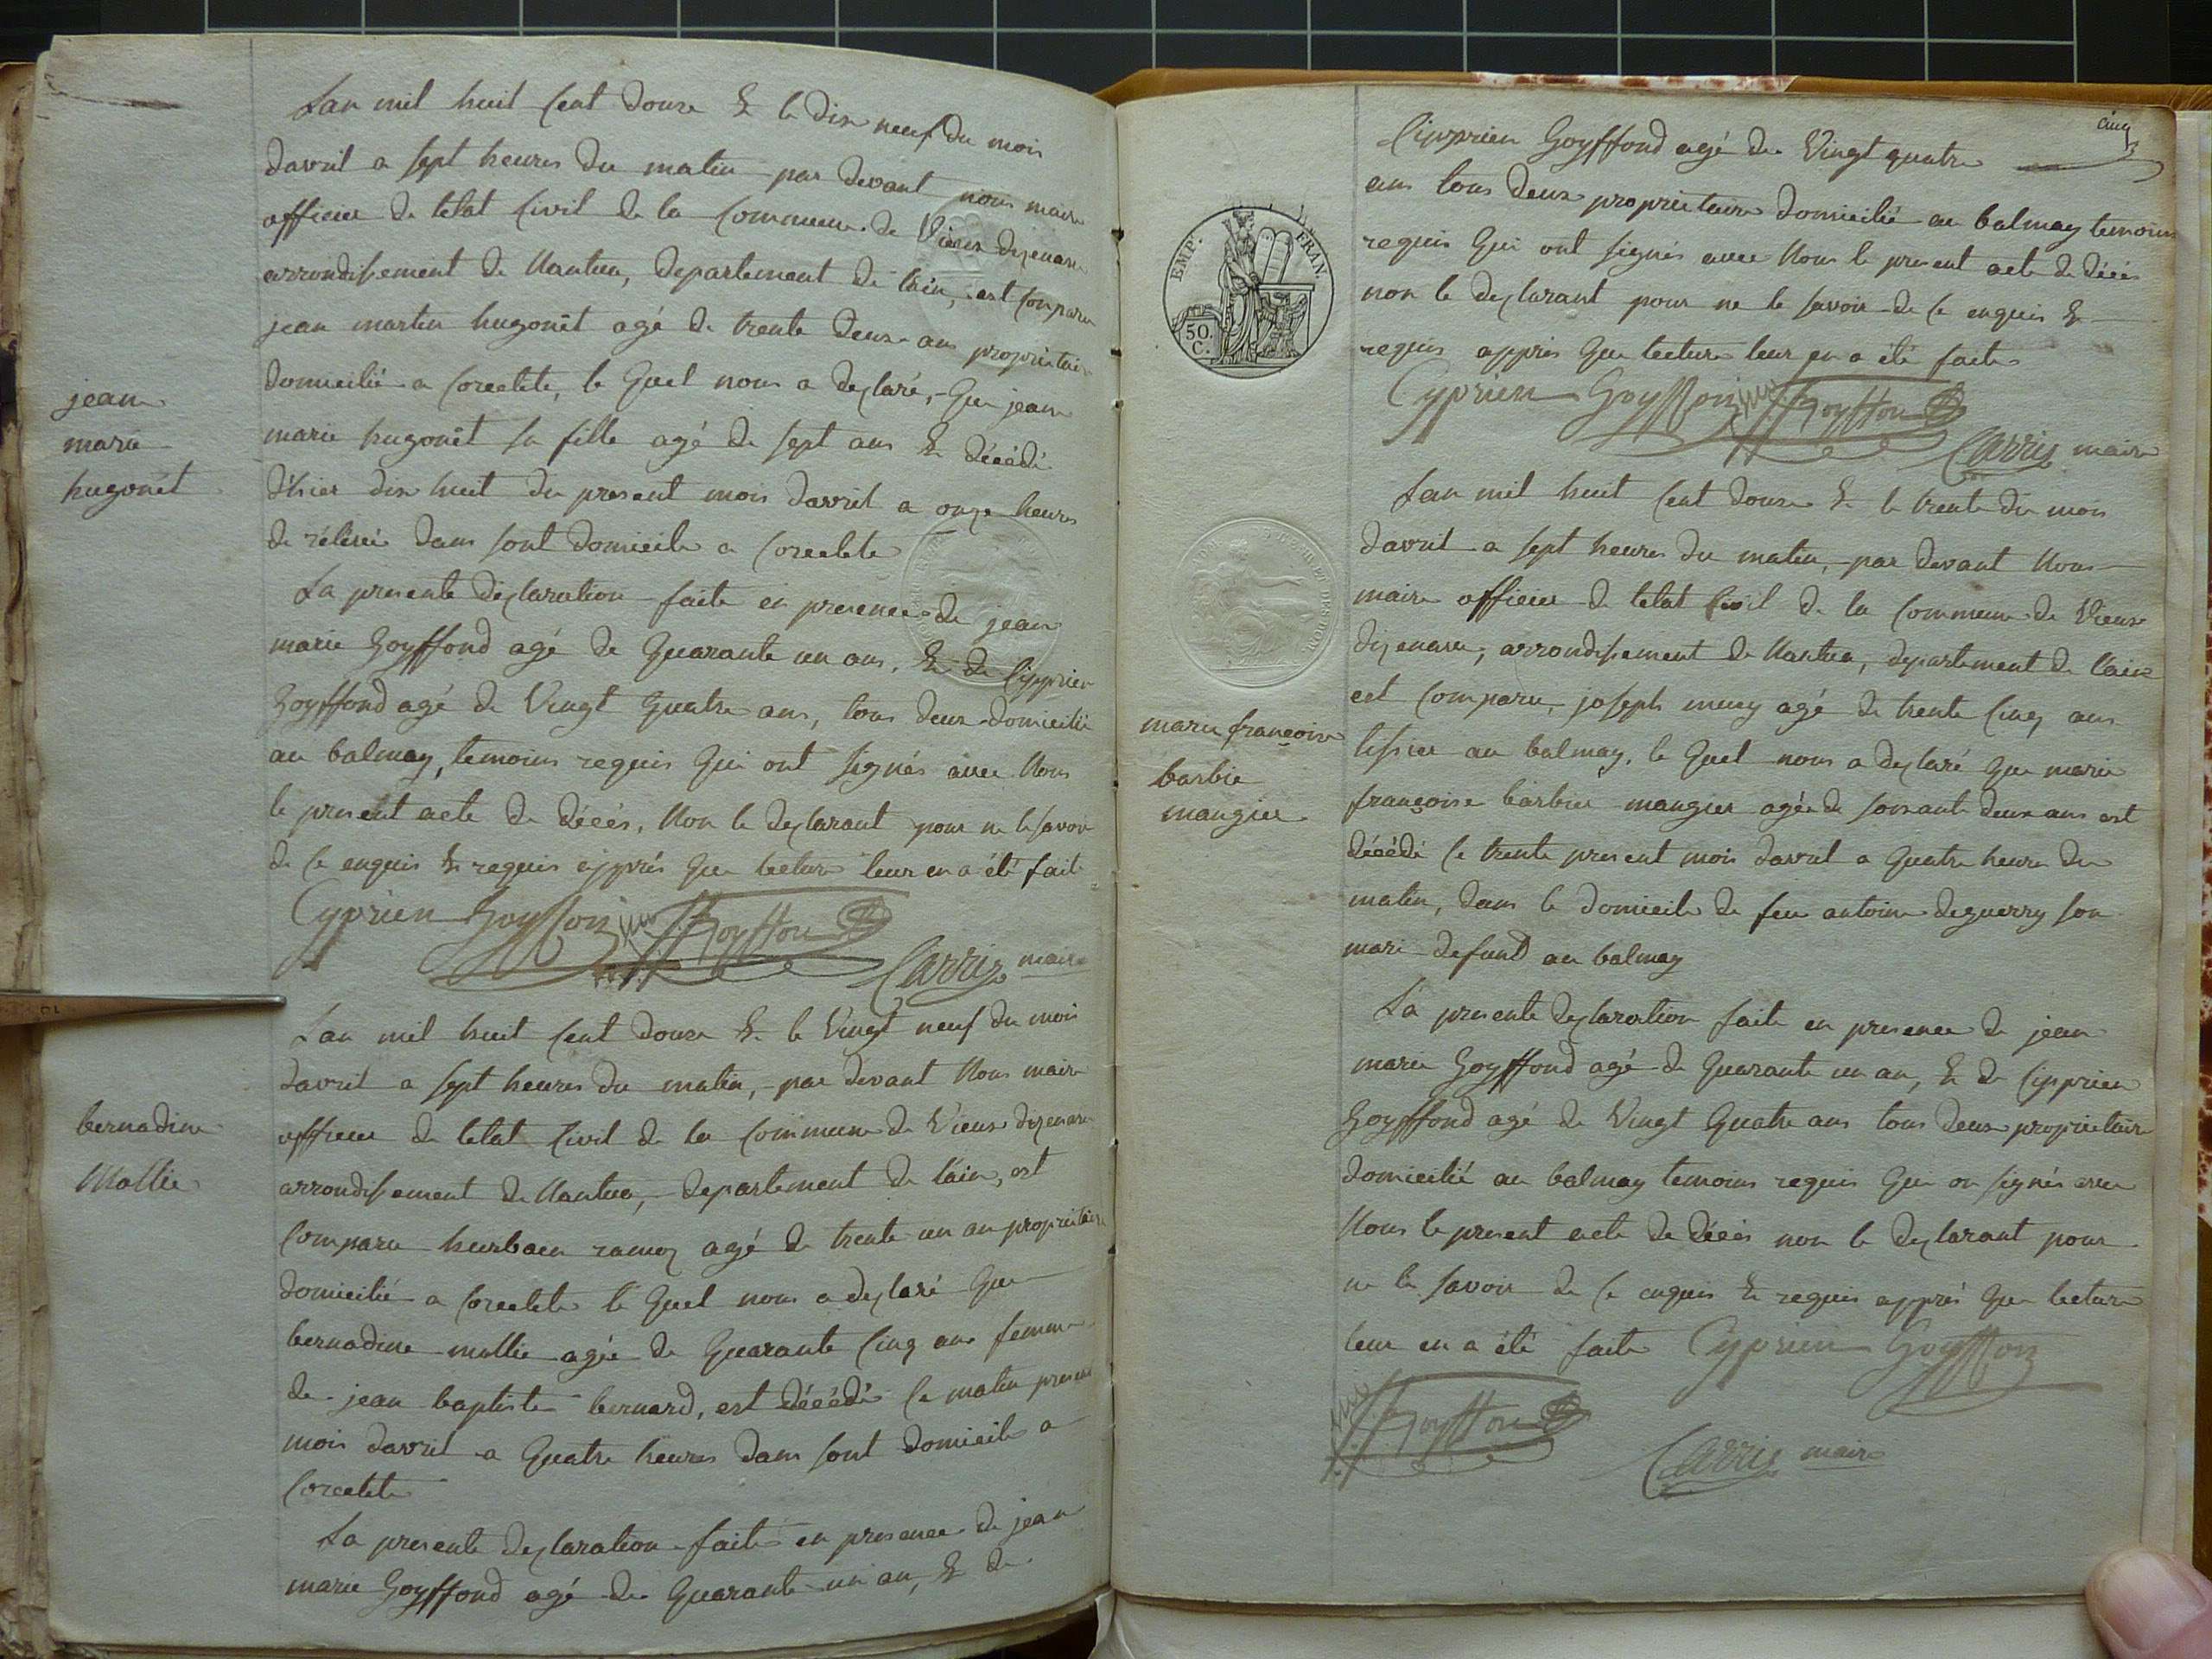 Lan mil huit Cent douze & le dix neuf du mois
davril a sept heures du matin par devant nous maire
officier de letat Civil de la Commune de Vieux dizenave
arrondissement de Nantua, departement de lain, est Comparu
jean martin hugonet agé de trente deux ans propriétaire
domicilié a Corcelete, le Quel nous a déclaré, Que jean
jean
marie
hugonet
marie hugonet sa fille agé de sept ans & décédé
d'hier dix huit du present mois davril a onze heures
de rélevée dans sont domicile a Corcelete
La presente déclaration faite en presence de jean
marie Goyffond agé de Quarante un ans, & de Cipprien
Goyffond agé de Vingt Quatre ans, tous deux domicilié
au balmay, temoins requis Qui ont signés avec Nous
le present acte de décès, Non le declarant pour ne le savoir
de Ce enquis & requis apprés Que lecture leur en a été faite
Cyprien Goyffon Goyffon
Carrie maire
Lan mil huit Cent douze & le Vingt neuf du mois
davril a sept heures du matin, par devant Nous maire
officier de letat Civil de la Commune de Vieux dizenave
bernadine
Mollie
arrondissement de Nantua, departement de lain, est
Comparu hurbain ramez agé de trente un an propriétaire
domicilié a Corcelete le Quel nous a déclaré Que
bernadine mollie agée de Quarante Cinq ans femme
de jean baptiste bernard, est décédé Ce matin present
mois davril a Quatre heures dans sont domicile a
Corcelete
La presente declaration faite en presence de jean
marie Goyffond agé de Quarante un an, & de
cinq
Cipprien Goyffond agé de Vingt quatre
ans tous deux propriétaire domicilié au balmay temoins
requis Qui ont signés avec Nous le present acte de décés
non le declarant pour ne le savoir de Ce enquis &
requis apprés Que lecture leur en a été faite
EMP. FRAN.
50.
C.
Cyprien Goyffon Goyffon
Carrie maire
Lan mil huit Cent douze & le trente du mois
davril a sept heures du matin, par devant Nous
maire officier de letat Civil de la Commune de Vieux
dizenave, arrondissement de Nantua, departement de lain
est Comparu, joseph mury agé de trente Cinq ans
marie françoise
barbie
mangier
tissier au balmay, le Quel nous a declaré Que marie
françoise barbier mangier agée de soixante deux ans est
décédé Ce trente present mois davril a Quatre heures du
matin, dans le domicile de feu antoine deguerry son
mari defunt au balmay
La presente declaration faite en presence de jean
marie Goyffond agé de Quarante un an, & de Cipprien
Goyffond agé de Vingt Quatre ans tous deux propriétaire
domicilié au balmay temoins requis Qui on signés avec
Nous le present acte de décés non le declarant pour
ne le savoir de Ce enquis & requis apprés Que lecture
leur en a été faite Cyprien Goyffon
Goyffon
Carrie maire